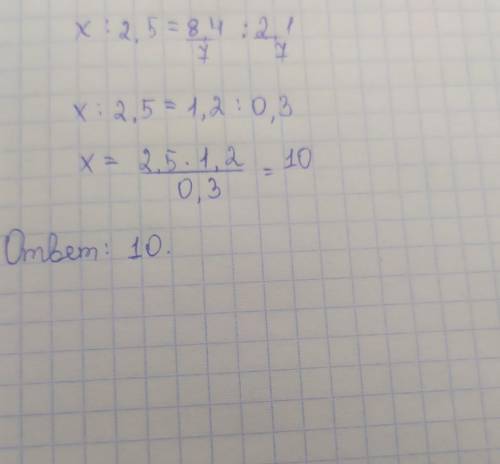 x : 2,5 = 8,4/7 : 2,1/7
x : 2,5 = 1,2 : 0,3
x = 2,5 · 1,2 / 0,3 = 10
Ответ: 10.